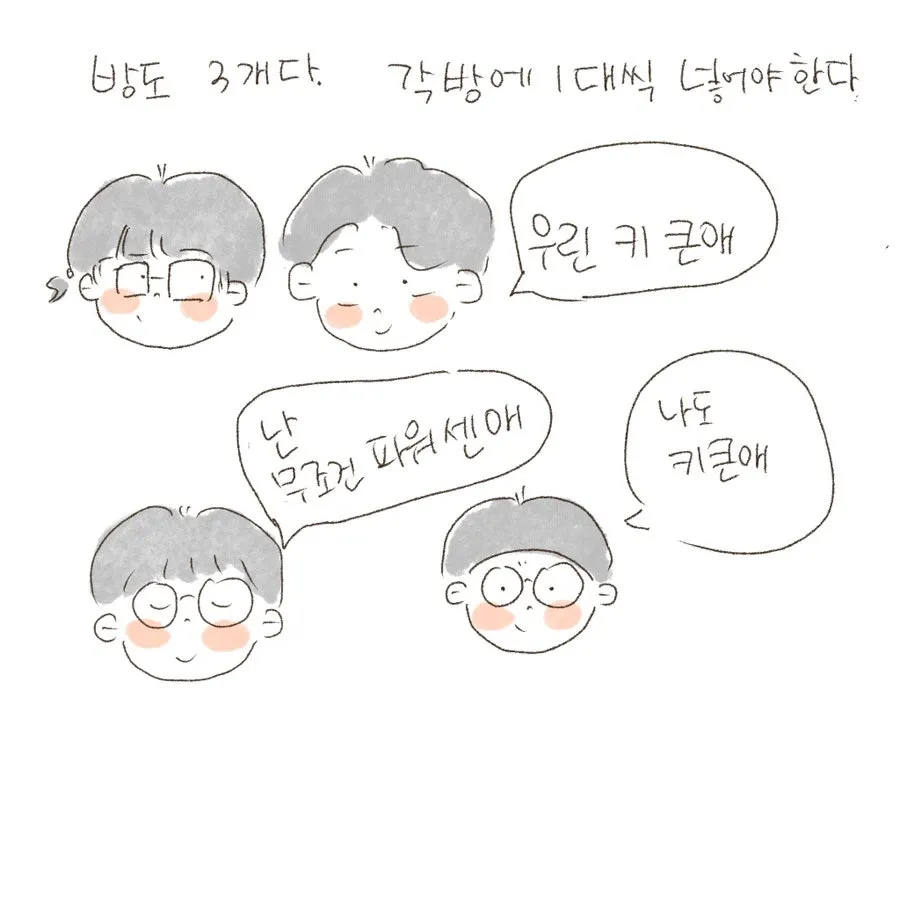 방도 3개다. 각방에 1대씩 넣어야한다
우린 키 큰애
난
무조건 파워센애
나도
키큰애